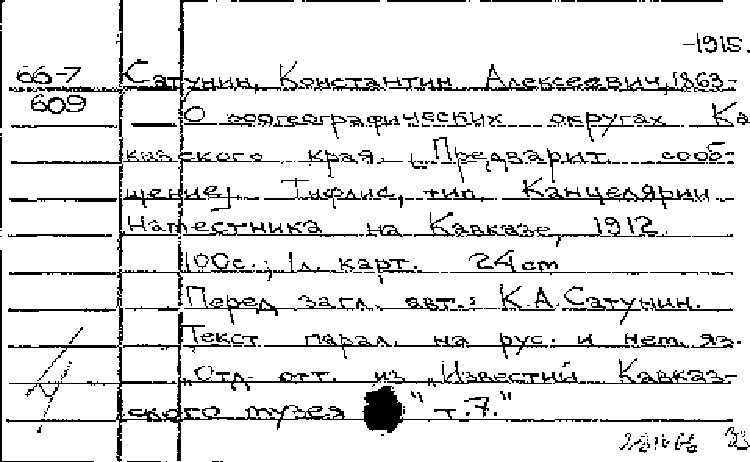 -1915.
66-7 Сатунин, Константин Алексеевич, 1863-
609 О зоогеографических округах Ка
вказского края. [Предварит. сооб-
щение]. Тифлис, тип. Канцелярии
Наместника на Кавказе, 1912.
100с.; 1л. карт. 24 cm
Перед загл. авт.: К.А.Сатунин.
Текст парал. на рус. и нем. яз.
"Отд. отт. из "Известий Кавказ-
ского музея" т.7."